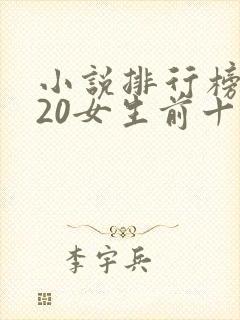 小說排行榜
20女生前十
李宇兵